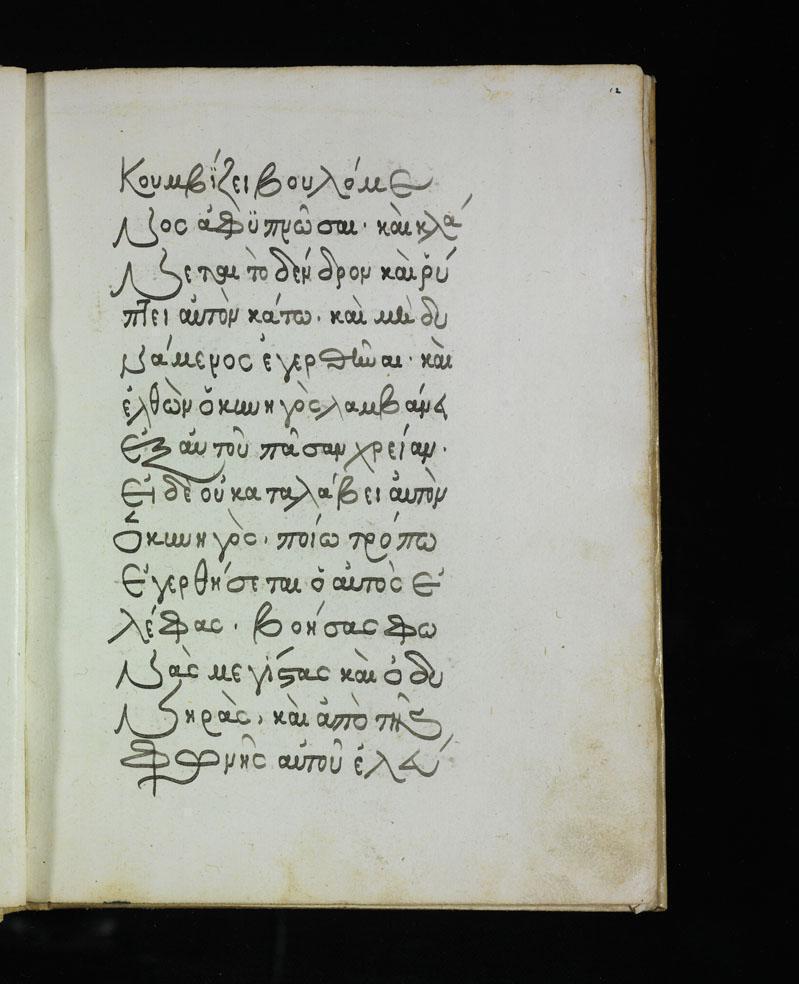 12
Κουμβίζει βουλόμε
νος ἀφϋπνῶσαι· καὶ κλά
ζεται τὸ δένδρον καὶ ῥί
πτει αὐτὸν κάτω· καὶ μὴ δυ
νάμενος ἐγερθῶαι· καὶ
ἐλθὼν ὁ κυνηγὸς λαμβάνει
ἐξ αὐτοῦ πᾶσαν χρείαν·
Εἰ δὲ οὐ καταλάβει αὐτὸν
ὁ κυνηγὸς· ποίω τρόπω
ἐγερθήσεται ὁ αὐτὸς ἐ
λέφας· βοήσας φω
νὰς μεγίστας καὶ ὀδυ
νηρὰς, καὶ ἀπὸ τῆς
φωνῆς αὐτοῦ ἐλεύ